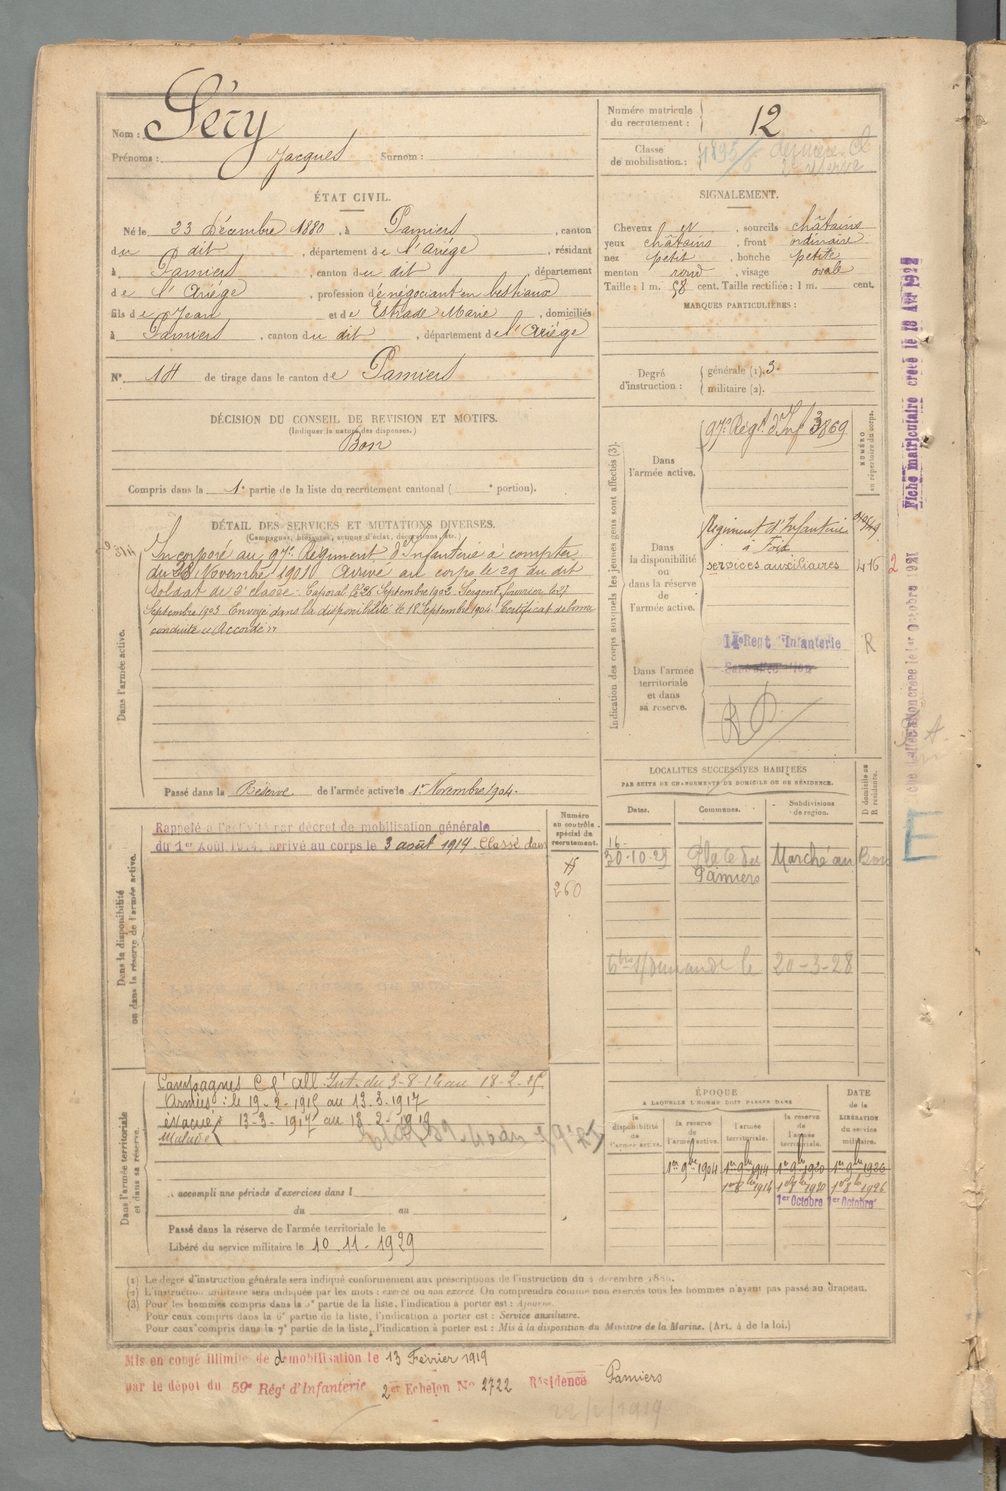 Nom : Séry
Prénoms : Jacques Surnom :
Numéro matricule du recrutement : 12
Classe de mobilisation :
ÉTAT CIVIL.
Né le 23 Décembre 1880, à Pamiers, canton
du dit, département de l'Ariège, résidant
à Pamiers, canton du dit, département
de l'Ariège, profession de négociant en bestiaux
fils de Jean et de Estrade Marie, domiciliés
à Pamiers, canton du dit, département de l'Ariège
N° 14 de tirage dans le canton de Pamiers
SIGNALEMENT.
Cheveux et, sourcils châtains
yeux châtains, front ordinaire
nez petit, bouche petite
menton rond, visage ovale
Taille : 1 m. 58 cent. Taille rectifiée : 1 m. cent.
MARQUES PARTICULIÈRES :
Degré d'instruction : générale (1). 3.
militaire (2).
DÉCISION DU CONSEIL DE REVISION ET MOTIFS.
(Indiquer la nature des dispenses.)
Bon
Compris dans la 1e partie de la liste du recrutement cantonal ( e portion).
DÉTAIL DES SERVICES ET MUTATIONS DIVERSES.
(Campagnes, blessures, actions d'éclat, décorations, etc.)
Dans l'armée active.
Incorporé au 97e Régiment d'Infanterie à compter
du Novembre 1901 Arrivé au corps le 29 du dit
soldat de 2e classe. Caporal le 26 Septembre 1902. Sergent fourrier le 27
Septembre 1903 Envoyé dans la disponibilité le 18 Septembre 1904. Certificat de bonne
conduite "Accordé"
Passé dans la Réserve de l'armée active le 1er Novembre 1904.
Indication des corps auxquels les jeunes gens sont affectés (3).
NUMÉRO au répertoire du corps.
Dans l'armée active.
97e Régt d'Inf 3869
Dans la disponibilité ou dans la réserve de l'armée active.
Régiment d'Infanterie
à Foix
services auxiliaires 416 2
Dans l'armée territoriale et dans sa réserve.
14e Regt d'Infanterie R
Sans affectation
Fiche matriculaire créée le 18 Avr 1922
LOCALITÉS SUCCESSIVES HABITÉES
PAR SUITE DE CHANGEMENTS DE DOMICILE OU DE RÉSIDENCE.
D domicile ou R résidence.
Dates. Communes. Subdivisions de région.
16
30-10-25 Place du Marché au Bois
Pamiers
20-3-28
Dans la disponibilité ou dans la réserve de l'armée active.
Rappelé à l'activité par décret de mobilisation générale
du 1er Août 1914, arrivé au corps le 3 août 1914 Classé dans
Numéro au contrôle spécial du recrutement.
260
Dans l'armée territoriale et dans sa réserve.
Campagnes C. l'All Int. du 3-8-14 au 18-2-15
Armées : le 19-2-1915 au 13-3-1917
évacué malade 13-3-1917 au 13-2-1919
a accompli une période d'exercices dans l
du au
Passé dans la réserve de l'armée territoriale le
Libéré du service militaire le 10.11.1929
ÉPOQUE
A LAQUELLE L'HOMME DOIT PASSER DANS
DATE de la LIBÉRATION du service militaire.
la disponibilité de l'armée active. la réserve de l'armée active. l'armée territoriale. la réserve de l'armée territoriale.
1er 9bre 1904 1er 9bre 1914 1er 9bre 1920 1er 9bre 1926
1er 8bre 1914 1er 8bre 1920 1er 8bre 1926
1er Octobre 1er Octobre
(1) Le degré d'instruction générale sera indiqué conformément aux prescriptions de l'instruction du 4 décembre 1889.
(2) L'instruction militaire sera indiquée par les mots : exercé ou non exercé. On comprendra comme non exercés tous les hommes n'ayant pas passé au drapeau.
(3) Pour les hommes compris dans la 5e partie de la liste, l'indication à porter est : Ajourné.
Pour ceux compris dans la 6e partie de la liste, l'indication à porter est : Service auxiliaire.
Pour ceux compris dans la 7e partie de la liste, l'indication à porter est : Mis à la disposition du Ministre de la Marine. (Art. 4 de la loi.)
Mis en congé illimité de démobilisation le 13 Février 1919
par le dépôt du 59e Régt d'Infanterie 2e Echelon No 2722 Résidence Pamiers
22/2/1919